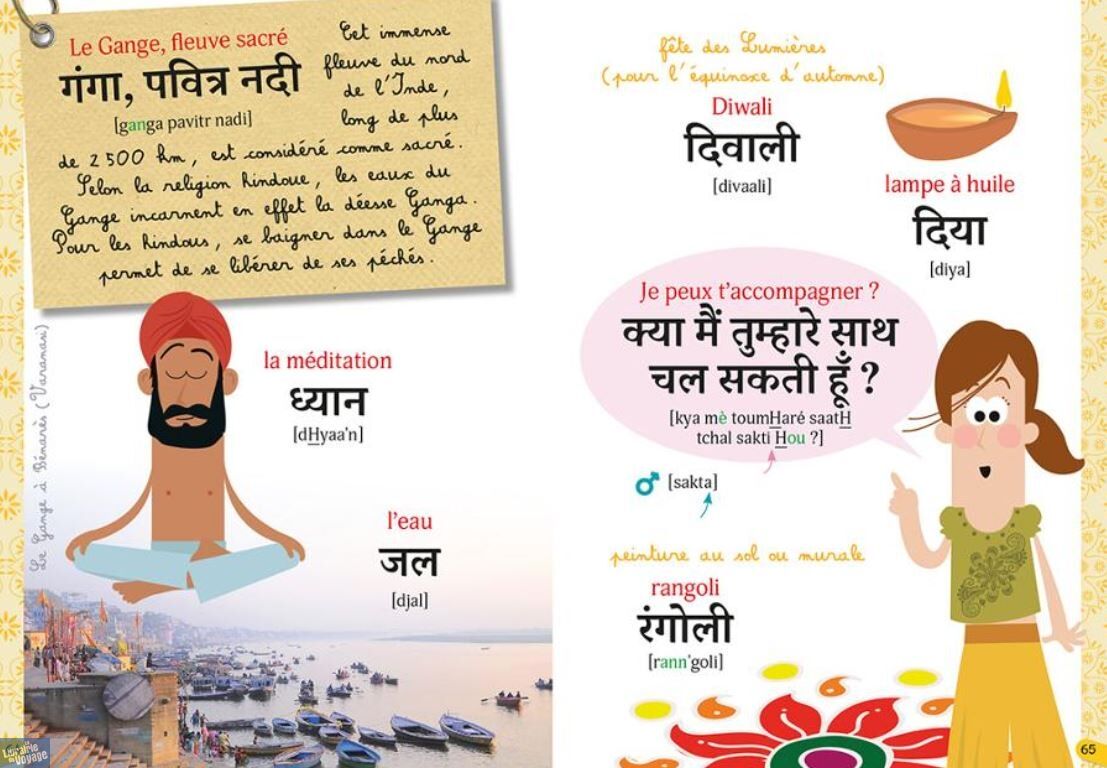 Le Gange, fleuve sacré
गंगा, पवित्र नदी
[ganga pavitr nadi]
Cet immense
fleuve du nord
de l'Inde,
long de plus
de 2 500 km, est considéré comme sacré.
Selon la religion hindoue, les eaux du
Gange incarnent en effet la déesse Ganga.
Pour les hindous, se baigner dans le Gange
permet de se libérer de ses péchés.
Le Gange à Bénarès (Varanasi)
la méditation
ध्यान
[dHyaa'n]
l'eau
जल
[djal]
fête des Lumières
(pour l'équinoxe d'automne)
Diwali
दिवाली
[divaali]
lampe à huile
दिया
[diya]
Je peux t'accompagner ?
क्या मैं तुम्हारे साथ
चल सकती हूँ ?
[kya mè toumHaré saatH
tchal sakti Hou ?]
♂ [sakta]
peinture au sol ou murale
rangoli
रंगोली
[rann'goli]
65
Librairie
du Voyage